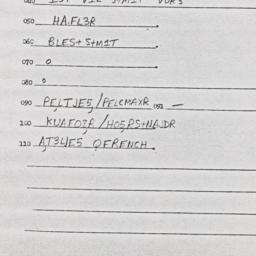 050 HA.FL3R
060 BLES+ S+M1T
070 0
080 0
090 PELTJES/PELCMAYR 091 —
100 KUAFOZR/HOSRS+NAJDR
110 AT3LJES QFRENCH.